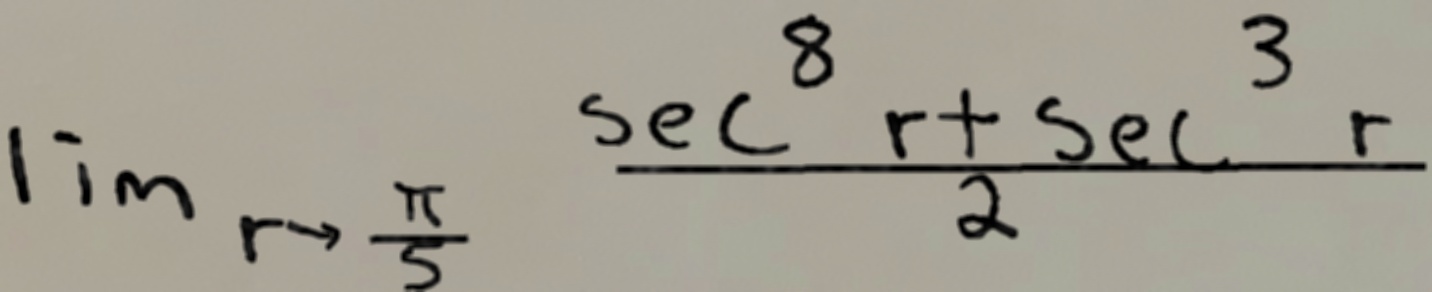 lim r→π/5 (sec^8 r + sec^3 r)/2